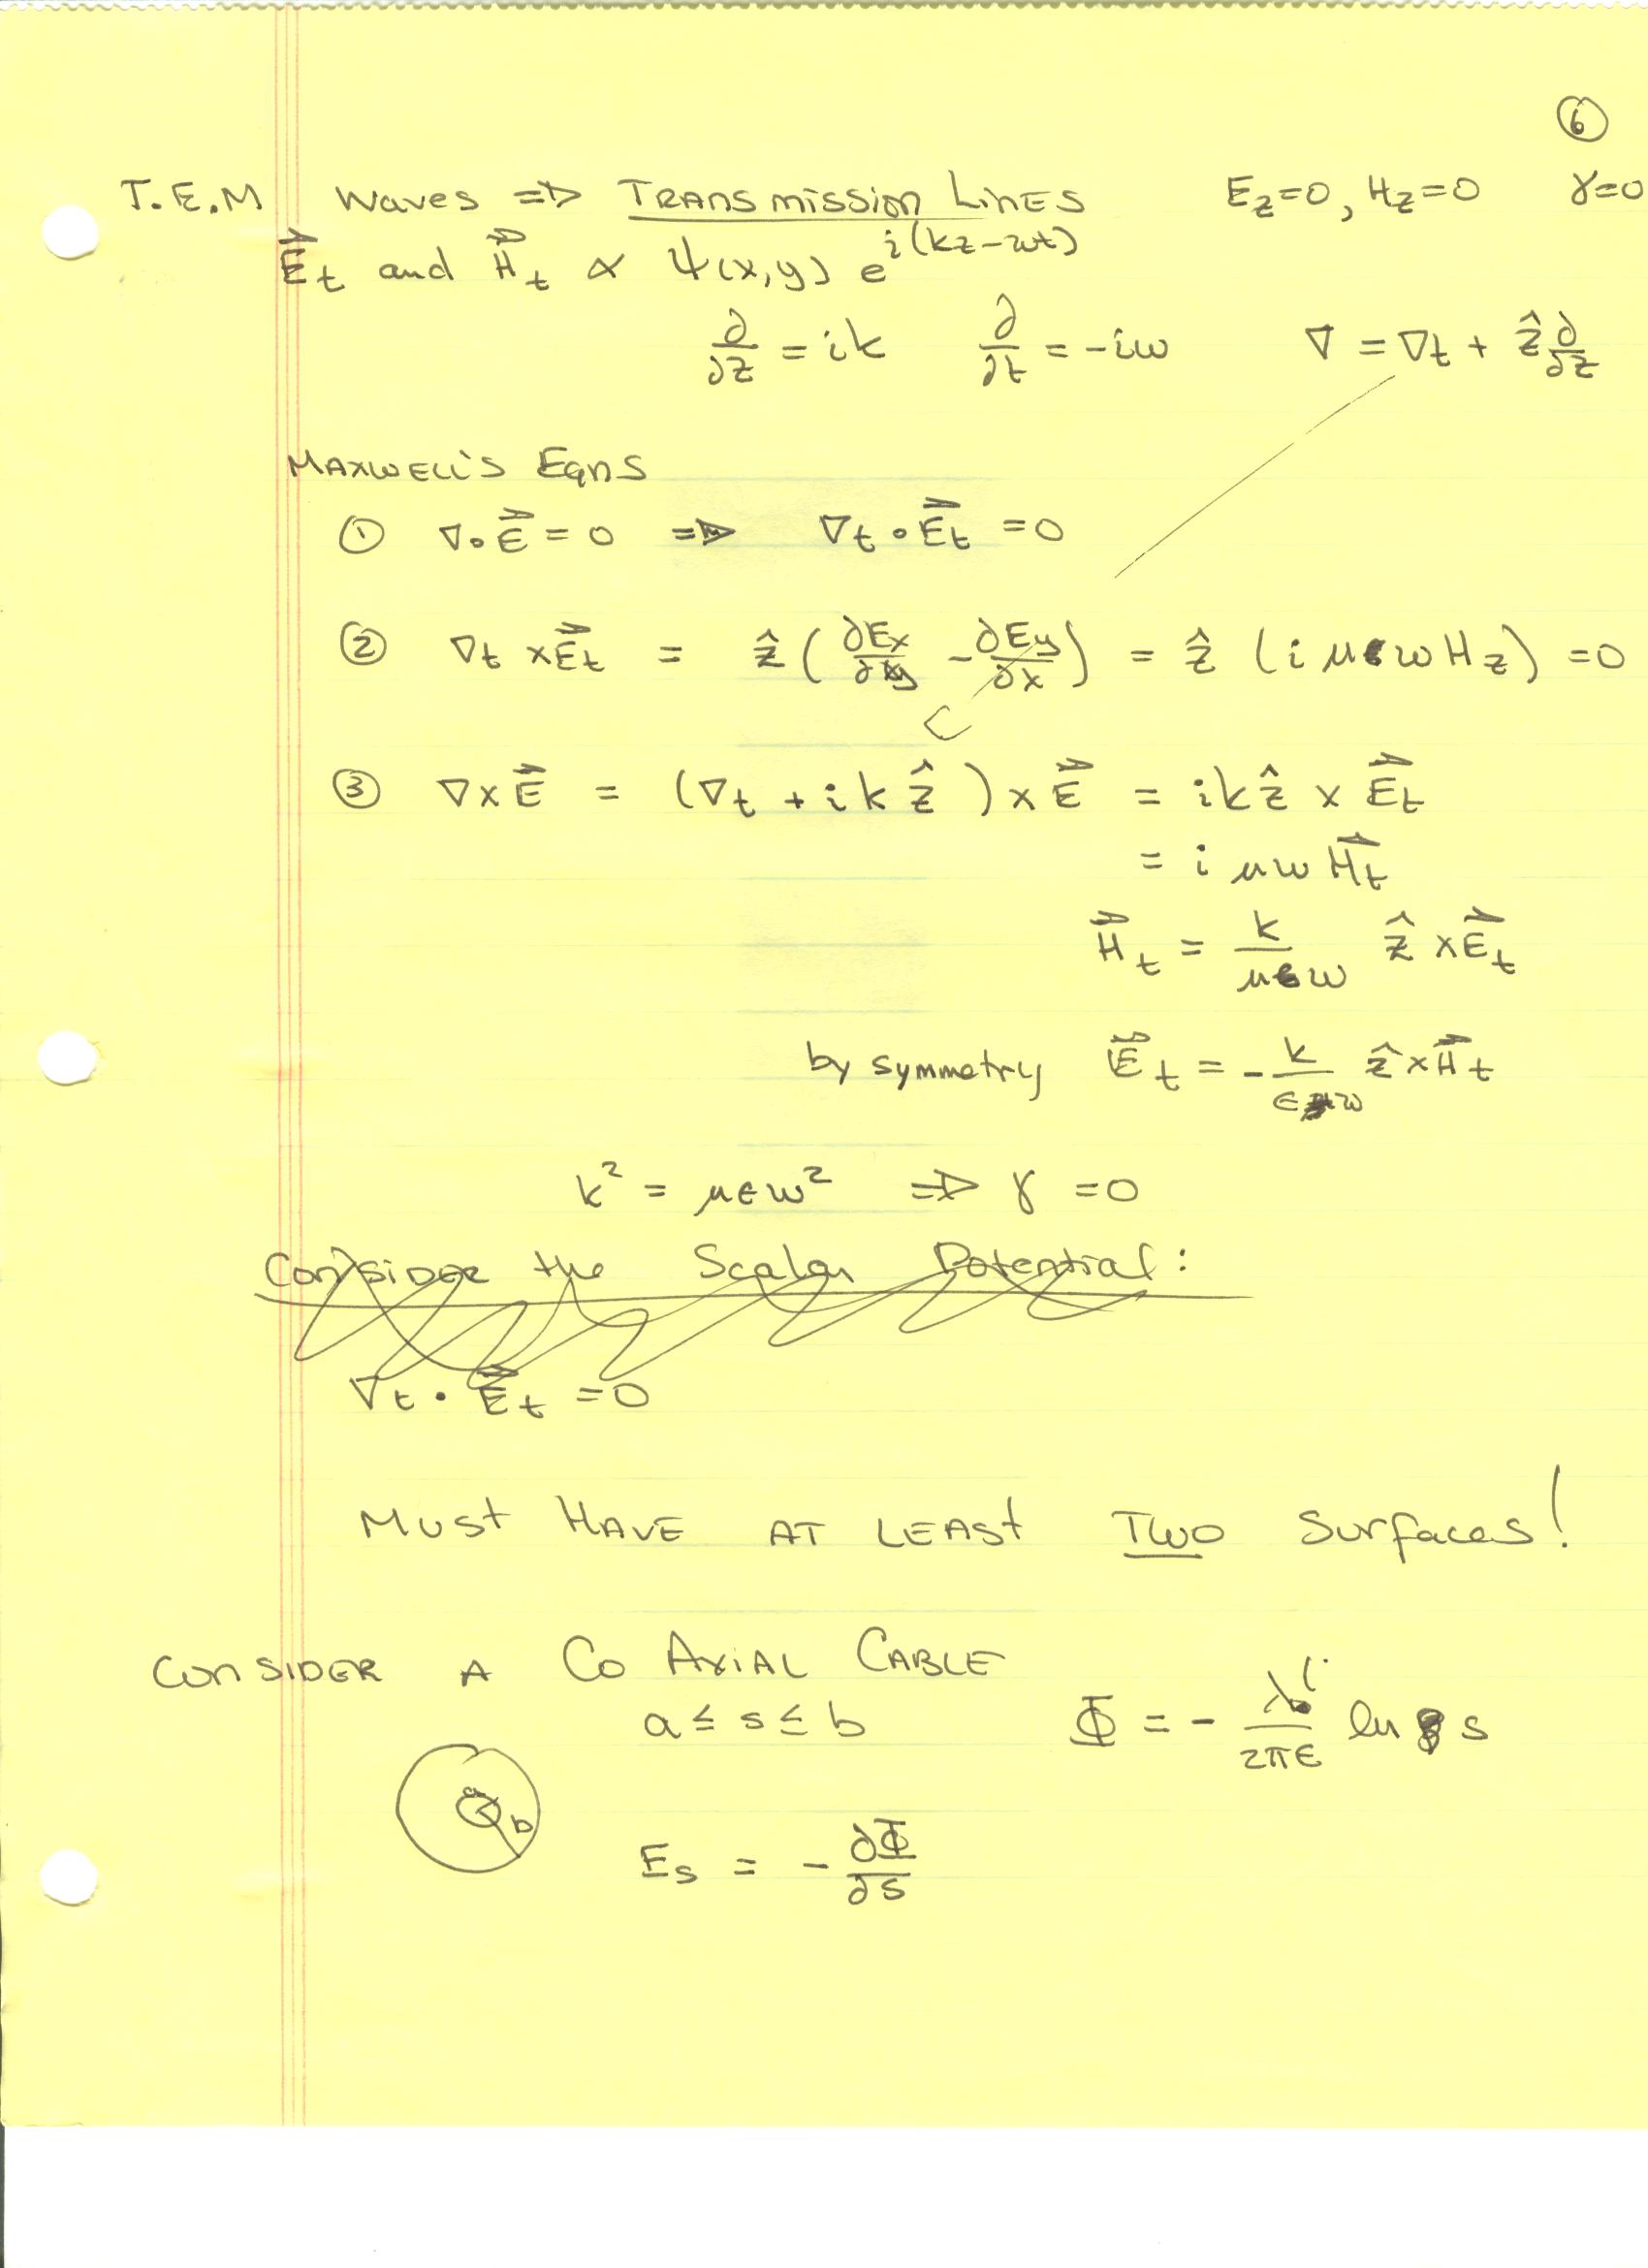 ⑥
T.E.M Waves ⇒ TRANSmission LINES E_z=0, H_z=0 γ=0
E⃗_t and H⃗_t ∝ ψ(x,y) e^{i(kz-ωt)}
∂/∂z = ik ∂/∂t = -iω ∇ = ∇_t + ẑ ∂/∂z
MAXWELL'S Eqns
① ∇·E⃗ = 0 ⇒ ∇_t·E⃗_t = 0
② ∇_t × E⃗_t = ẑ (∂E_x/∂y - ∂E_y/∂x) = ẑ (i μ ω H_z) = 0
③ ∇×E⃗ = (∇_t + ikẑ) × E⃗ = ikẑ × E⃗_t
= i μω H⃗_t
H⃗_t = k/μω ẑ × E⃗_t
by symmetry E⃗_t = - k/εω ẑ × H⃗_t
k² = μεω² ⇒ γ = 0
Consider the Scalar Potential:
∇_t · E⃗_t = 0
MUST HAVE AT LEAST TWO Surfaces!
CONSIDER A CO AXIAL CABLE
a ≤ s ≤ b Φ = - λ/2πε ln s
a b
E_s = - ∂Φ/∂s